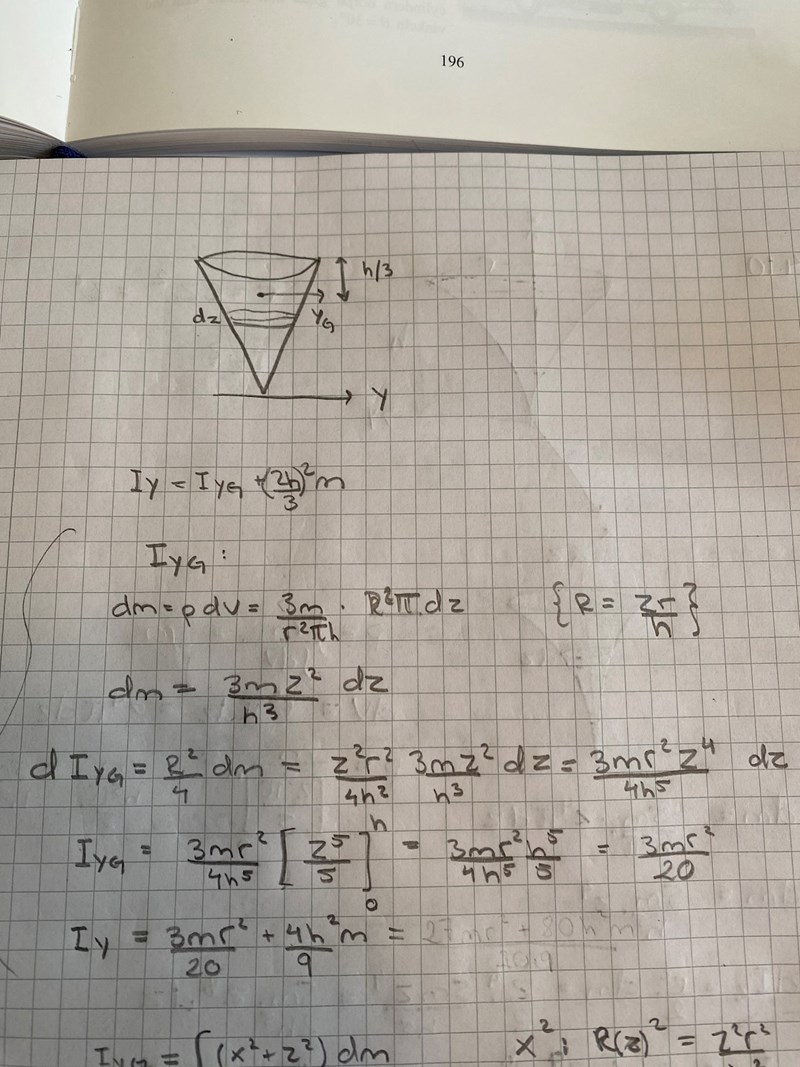 196
h/3
dz
Y_G
Y
I_Y = I_YG + (2h/3)²m
I_YG :
dm = ρ dV = 3m/(r²πh) · R²π dz {R = zr/h}
dm = 3mz²/h³ dz
dI_YG = R²/4 dm = z²r²/4h² 3mz²/h³ dz = 3mr²z⁴/4h⁵ dz
I_YG = 3mr²/4h⁵ [z⁵/5]₀ʰ = 3mr²/4h⁵ h⁵/5 = 3mr²/20
I_Y = 3mr²/20 + 4h²m/9 = 27mr² + 80h²m
I_YG = ∫(x²+z²) dm x² : R(z)² = z²r²